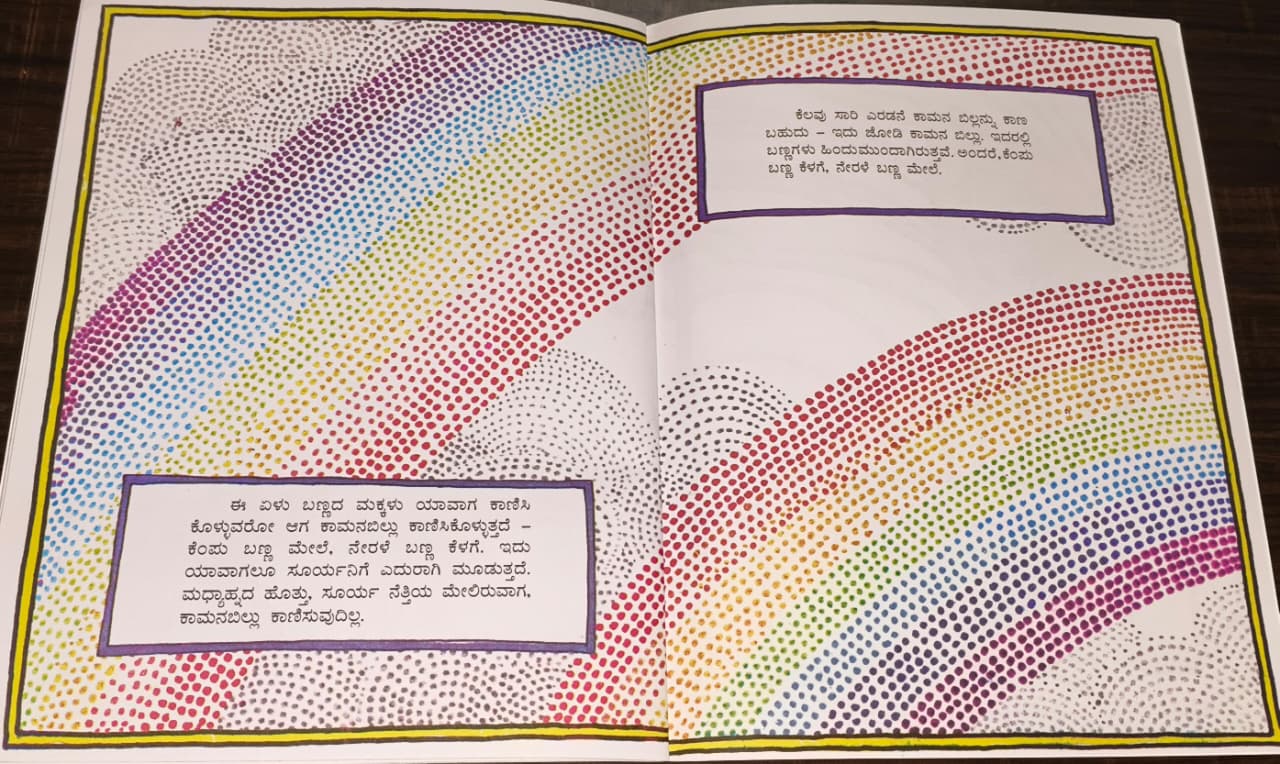 ಈ ಏಳು ಬಣ್ಣದ ಮಕ್ಕಳು ಯಾವಾಗ ಕಾಣಿಸಿ
ಕೊಳ್ಳುವರೋ ಆಗ ಕಾಮನಬಿಲ್ಲು ಕಾಣಿಸಿಕೊಳ್ಳುತ್ತದೆ –
ಕೆಂಪು ಬಣ್ಣ ಮೇಲೆ, ನೇರಳೆ ಬಣ್ಣ ಕೆಳಗೆ. ಇದು
ಯಾವಾಗಲೂ ಸೂರ್ಯನಿಗೆ ಎದುರಾಗಿ ಮೂಡುತ್ತದೆ.
ಮಧ್ಯಾಹ್ನದ ಹೊತ್ತು, ಸೂರ್ಯ ನೆತ್ತಿಯ ಮೇಲಿರುವಾಗ,
ಕಾಮನಬಿಲ್ಲು ಕಾಣಿಸುವುದಿಲ್ಲ.
ಕೆಲವು ಸಾರಿ ಎರಡನೆ ಕಾಮನ ಬಿಲ್ಲನ್ನು ಕಾಣ
ಬಹುದು – ಇದು ಜೋಡಿ ಕಾಮನ ಬಿಲ್ಲು. ಇದರಲ್ಲಿ
ಬಣ್ಣಗಳು ಹಿಂದುಮುಂದಾಗಿರುತ್ತವೆ. ಅಂದರೆ, ಕೆಂಪು
ಬಣ್ಣ ಕೆಳಗೆ, ನೇರಳೆ ಬಣ್ಣ ಮೇಲೆ.